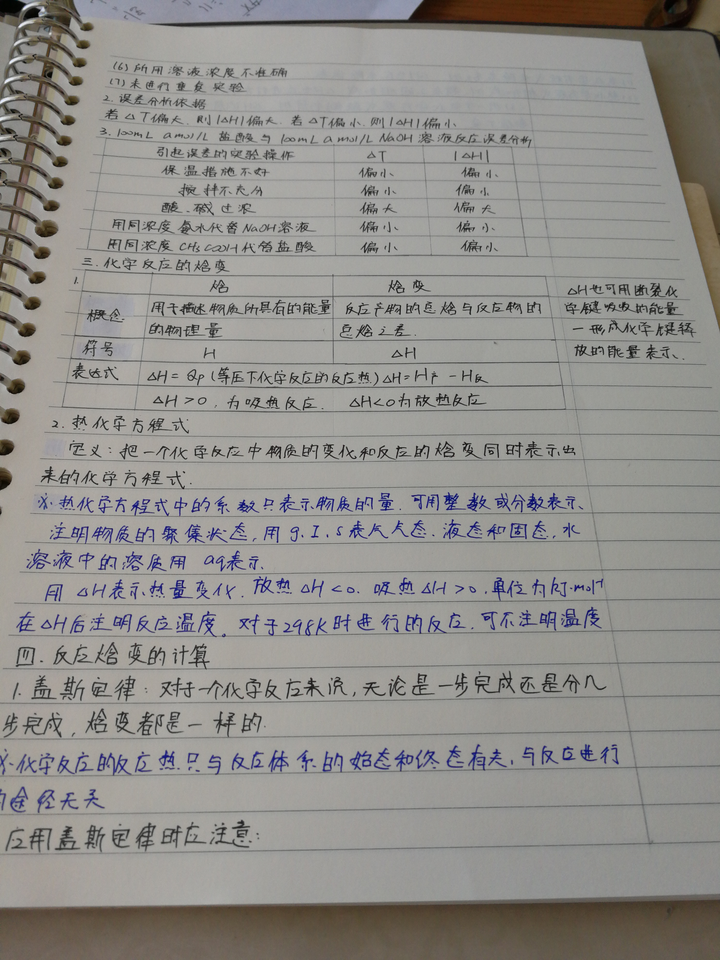 (6) 所用溶液浓度不准确
(7) 未进行重复实验
2. 误差分析依据
若△T偏大,则|△H|偏大. 若△T偏小,则|△H|偏小
3. 100mL a mol/L 盐酸与 100mL a mol/L NaOH 溶液反应误差分析
引起误差的实验操作 △T |△H|
保温措施不好 偏小 偏小
搅拌不充分 偏小 偏小
酸、碱过浓 偏大 偏大
用同浓度氨水代替NaOH溶液 偏小 偏小
用同浓度CH3COOH代替盐酸 偏小 偏小
三. 化学反应的焓变
1. 焓 焓变
概念 用于描述物质所具有的能量 反应产物的总焓与反应物的
的物理量 总焓之差.
符号 H △H
表达式 △H = Qp (等压下化学反应的反应热) △H = H产 - H反
△H > 0, 为吸热反应. △H<0为放热反应
△H也可用断裂化
学键吸收的能量
一形成化学键释
放的能量表示.
2. 热化学方程式
定义: 把一个化学反应中物质的变化和反应的焓变同时表示出
来的化学方程式.
※热化学方程式中的系数只表示物质的量. 可用整数或分数表示、
注明物质的聚集状态, 用 g. l. s 表示气态. 液态和固态, 水
溶液中的溶质用 aq表示.
用 △H表示热量变化. 放热 △H < 0. 吸热 △H > 0. 单位为kJ·mol-1
在△H后注明反应温度。对于298K时进行的反应. 可不注明温度
四. 反应焓变的计算
1. 盖斯定律: 对于一个化学反应来说, 无论是一步完成还是分几
步完成, 焓变都是一样的.
※化学反应的反应热只与反应体系的始态和终态有关, 与反应进行
途径无关
应用盖斯定律时应注意: